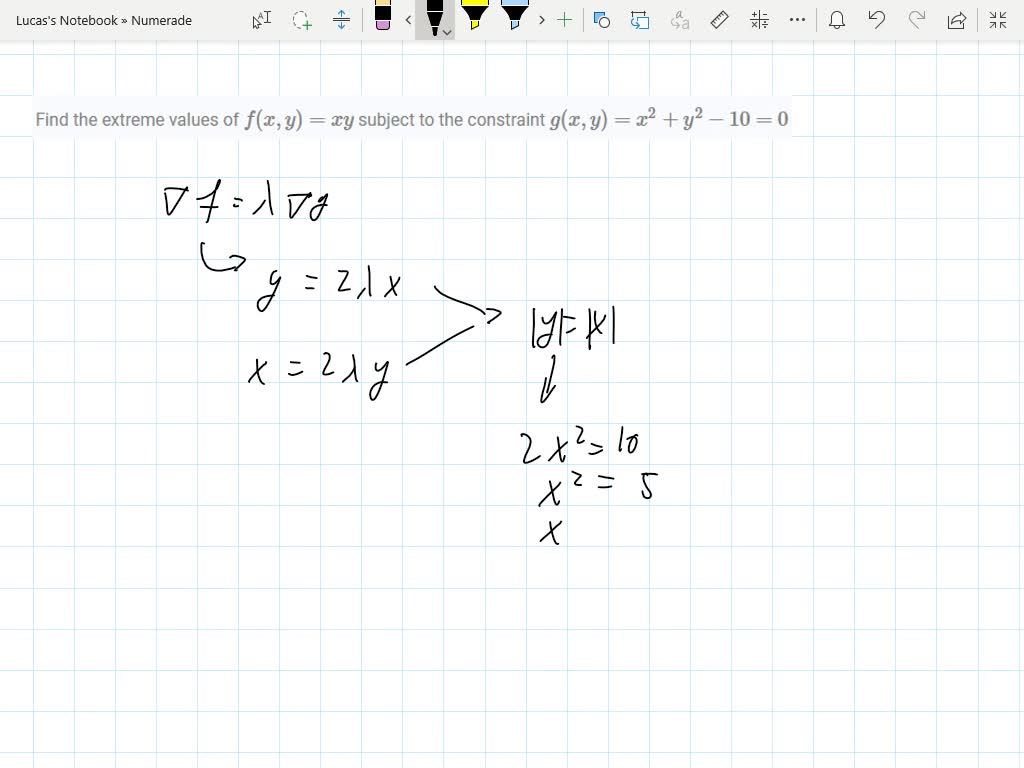 Lucas's Notebook » Numerade
Find the extreme values of f(x, y) = xy subject to the constraint g(x, y) = x² + y² − 10 = 0
∇f = λ∇g
y = 2λx
x = 2λy
|y| = |x|
2x² = 10
x² = 5
x